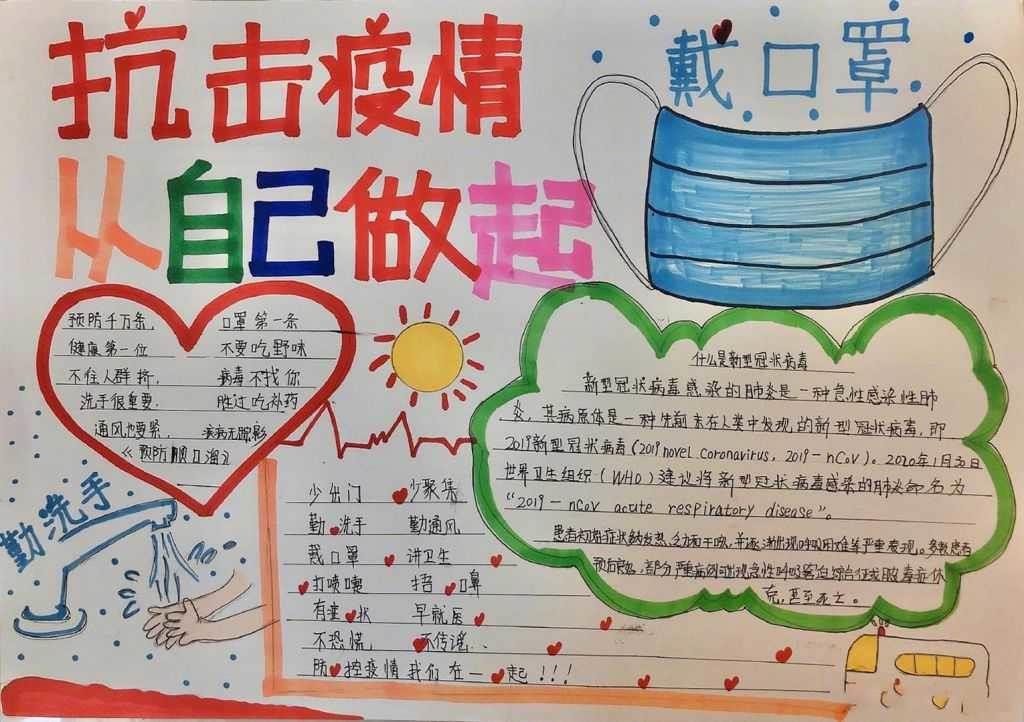 抗击疫情
从自己做起
戴口罩
预防千万条， 口罩第一条
健康第一位 不要吃野味
不住人群挤， 病毒不找你
洗手很重要， 胜过吃补药
通风也要紧， 疾病无踪影
《预防顺口溜》
勤洗手
少出门 少聚集
勤洗手 勤通风
戴口罩 讲卫生
打喷嚏 捂口鼻
有症状 早就医
不恐慌， 不传谣、、
防控疫情我们在一起！！！
什么是新型冠状病毒
新型冠状病毒感染的肺炎是一种急性感染性肺
炎，其病原体是一种先前未在人类中发现的新型冠状病毒，即
2019新型冠状病毒（2019 novel coronavirus，2019-nCoV）。2020年1月30日
世界卫生组织（WHO）建议将新型冠状病毒感染的肺炎命名为
“2019-nCoV acute respiratory disease”。
患者初始症状为发热、乏力和干咳，并逐渐出现呼吸困难等严重表现。多数患者
预后良好，部分严重病例可出现急性呼吸窘迫综合征或脓毒症休
克，甚至死亡。